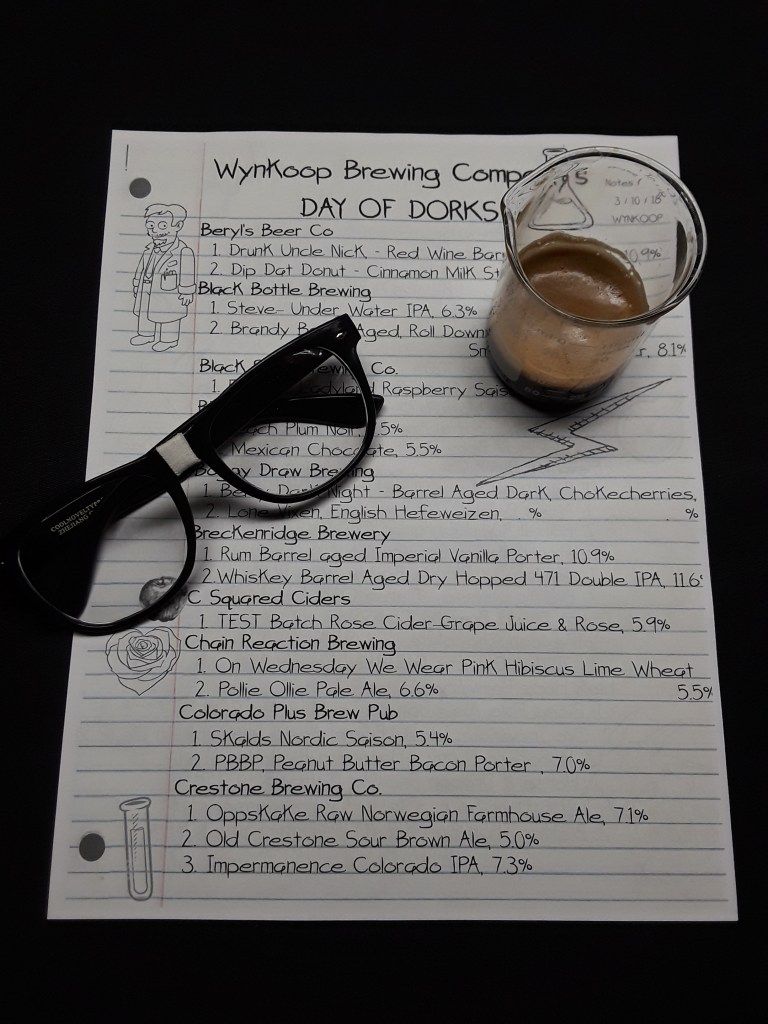 WynKoop Brewing Comp
Notes /
3 / 10 / 18
WYNKOOP
DAY OF DORKS
Beryl's Beer Co
1. Drunk Uncle Nick - Red Wine Bar
10.9%
2. Dip Dat Donut - Cinnamon Milk St
Black Bottle Brewing
1. Steve- Under Water IPA, 6.3%
2. Brandy Aged, Roll Down
8.1%
Black Co.
1. Raspberry Sais
Plum Noir, .5%
Mexican Chocolate, 5.5%
Draw Brewing
1. Dark Night - Barrel Aged Dark, Chokecherries,
2. Lone Vixen, English Hefeweizen, . %
%
Breckenridge Brewery
1. Rum Barrel aged Imperial Vanilla Porter, 10.9%
2. Whiskey Barrel Aged Dry Hopped 471 Double IPA, 11.6
C Squared Ciders
1. TEST Batch Rose Cider-Grape Juice & Rose, 5.9%
Chain Reaction Brewing
1. On Wednesday We Wear Pink Hibiscus Lime Wheat
5.5%
2. Pollie Ollie Pale Ale, 6.6%
Colorado Plus Brew Pub
1. Skalds Nordic Saison, 5.4%
2. PBBP, Peanut Butter Bacon Porter , 7.0%
Crestone Brewing Co.
1. OppsKaKe Raw Norwegian Farmhouse Ale, 7.1%
2. Old Crestone Sour Brown Ale, 5.0%
3. Impermanence Colorado IPA, 7.3%